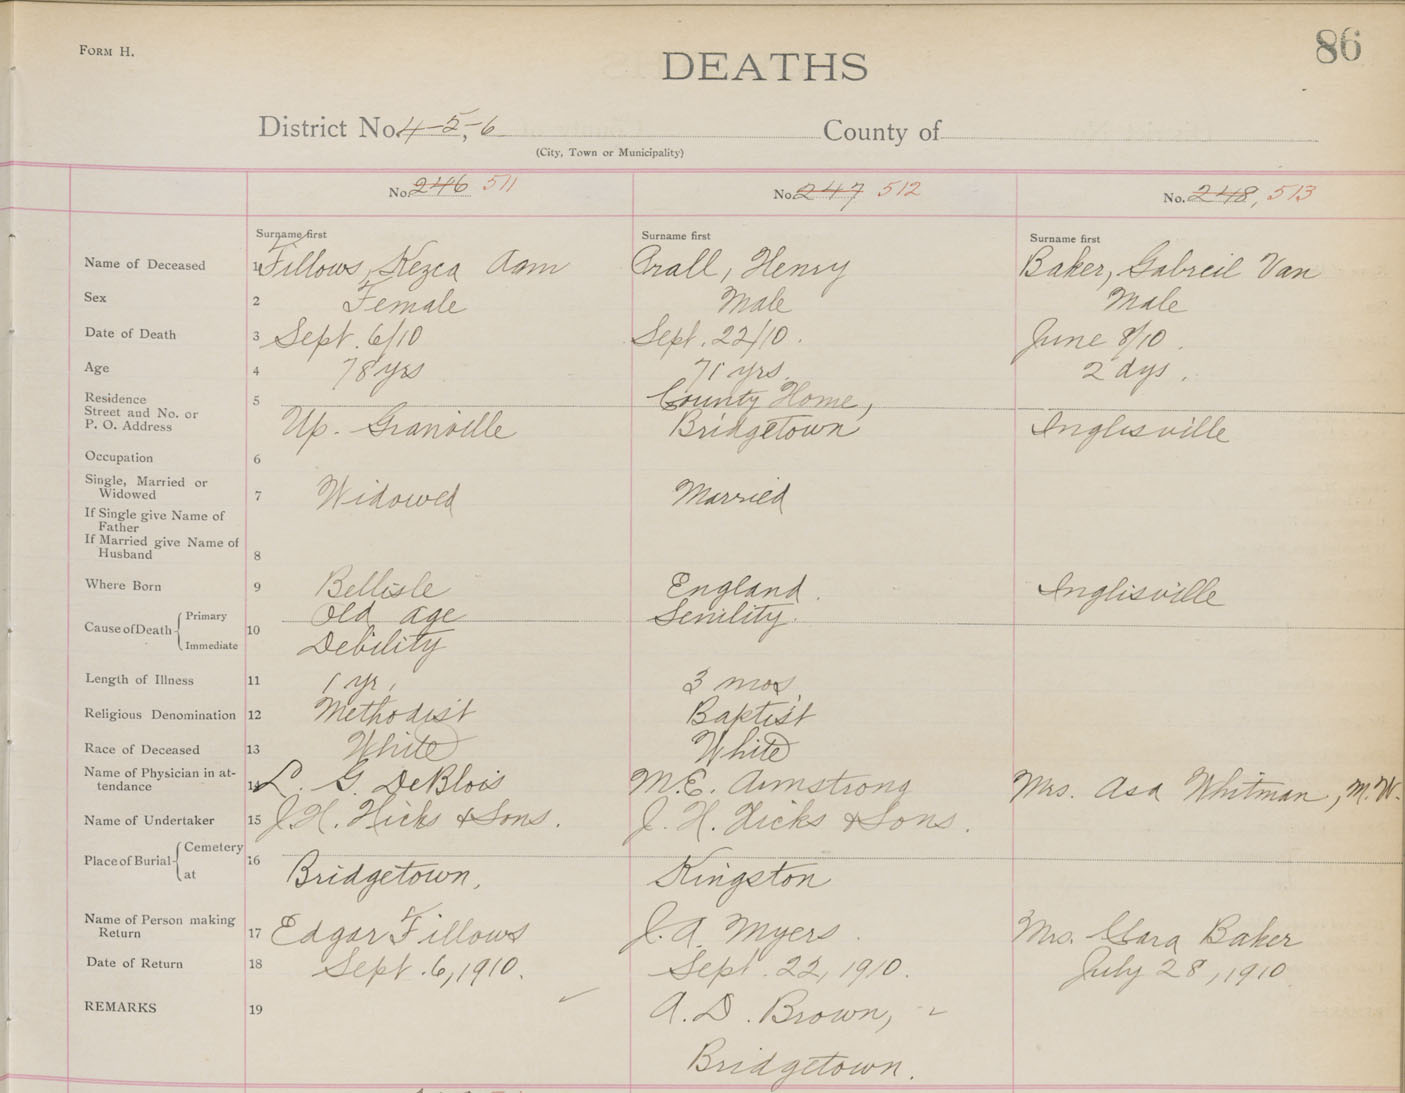 FORM H.
86
DEATHS
District No. 4-5,-6 County of
(City, Town or Municipality)
No. 246 511 No. 247 512 No. 248, 513
Surname first Surname first Surname first
Name of Deceased 1 Fillows, Kezca Aam Crall, Henry Baker, Gabreil Van
Sex 2 Female Male Male
Date of Death 3 Sept. 6/10 Sept. 22/10. June 8/10.
Age 4 78 yrs 71 yrs. 2 dys.
Residence 5 County Home,
Street and No. or
P. O. Address Up. Granville Bridgetown Inglisville
Occupation 6
Single, Married or
Widowed 7 Widowed Married
If Single give Name of
Father
If Married give Name of
Husband 8
Where Born 9 Bellisle England. Inglisville
Cause of Death 10 Primary Old age Senility.
Immediate Debility
Length of Illness 11 1 yr. 3 mos
Religious Denomination 12 Methodist Baptist
Race of Deceased 13 White White
Name of Physician in at-
tendance 14 L. G. DeBlois M.E. Armstrong Mrs. Asa Whitman, M.W.
Name of Undertaker 15 J.H. Hicks & Sons. J. H. Hicks & Sons.
Place of Burial 16 Cemetery
at Bridgetown. Kingston
Name of Person making
Return 17 Edgar Fillows J. A. Myers. Mrs. Clara Baker
Date of Return 18 Sept. 6, 1910. Sept. 22, 1910. July 28, 1910
REMARKS 19 A. D. Brown,
Bridgetown.